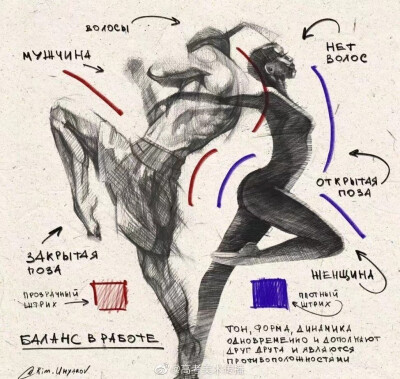 ВОЛОСЫ
МУЖЧИНА
НЕТ
ВОЛОС
ОТКРЫТАЯ
ПОЗА
ЗАКРЫТАЯ
ПОЗА
ЖЕНЩИНА
ПРОЗРАЧНЫЙ
ШТРИХ
ПЛОТНЫЙ
ШТРИХ
БАЛАНС В РАБОТЕ
ТОН, ФОРМА, ДИНАМИКА
ОДНОВРЕМЕННО И ДОПОЛНЯЮТ
ДРУГ ДРУГА И ЯВЛЯЮТСЯ
ПРОТИВОПОЛОЖНОСТЯМИ